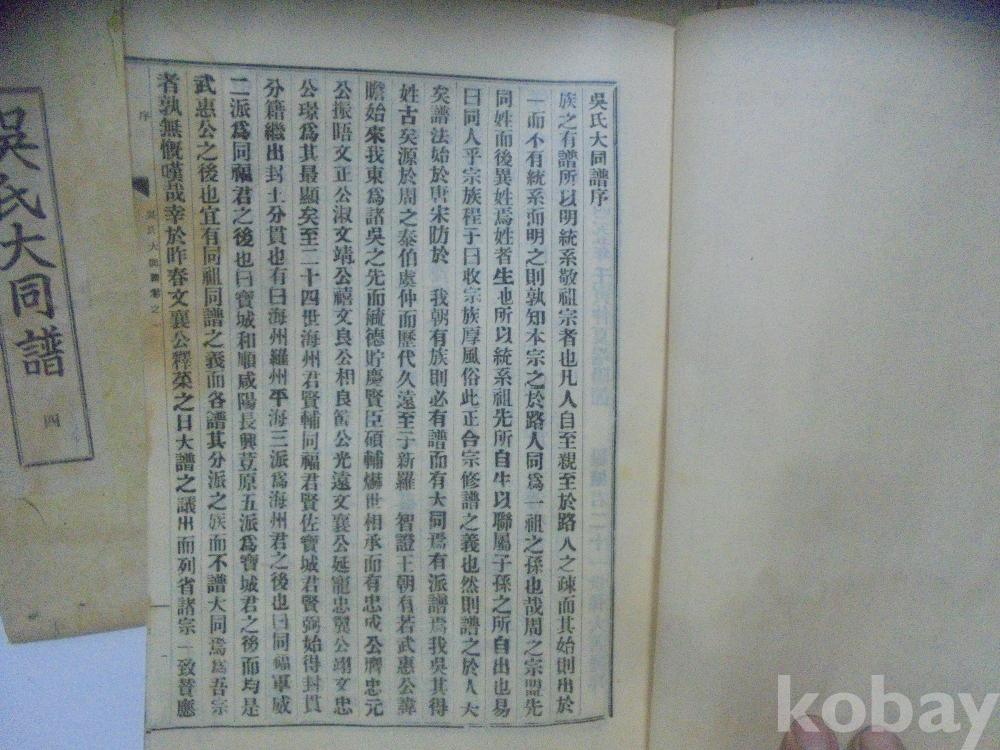 吳氏大同譜序
族之有譜所以明統系敬祖宗者也凡人自至親至於路人之疎而其始則出於
一而不有統系而明之則孰知本宗之於路人同爲一祖之孫也哉周之宗盟先
同姓而後異姓焉姓者生也所以統系祖先所自生以聯屬子孫之所自出也易
曰同人乎宗族程子曰收宗族厚風俗此正合宗修譜之義也然則譜之於人大
矣譜法始於唐宋昉於 我朝有族則必有譜而有大同焉有派譜焉我吳其得
姓古矣源於周之泰伯虞仲而歷代久遠至于新羅 智證王朝有若武惠公諱
瞻始來我東爲諸吳之先而毓德貯慶賢臣碩輔爀世相承而有忠成公濟忠元
公振晤文正公淑文靖公禧文良公相良 公光遠文襄公延寵忠翼公翊文忠
公璟爲其最顯矣至二十四世海州君賢輔同福君賢佐寶城君賢弼始得封貫
分籍繼出封土分貫也有曰海州羅州平海三派爲海州君之後也曰同福軍威
二派爲同福君之後也曰寶城和順咸陽長興荳原五派爲寶城君之後而均是
武惠公之後也宜有同祖同譜之義而各譜其分派之族而不譜大同焉爲吾宗
者孰無慨嘆哉幸於昨春文襄公釋菜之日大譜之議出而列省諸宗一致贊應
序
吳氏大同譜卷之
一
吳氏大同譜
四
kobay